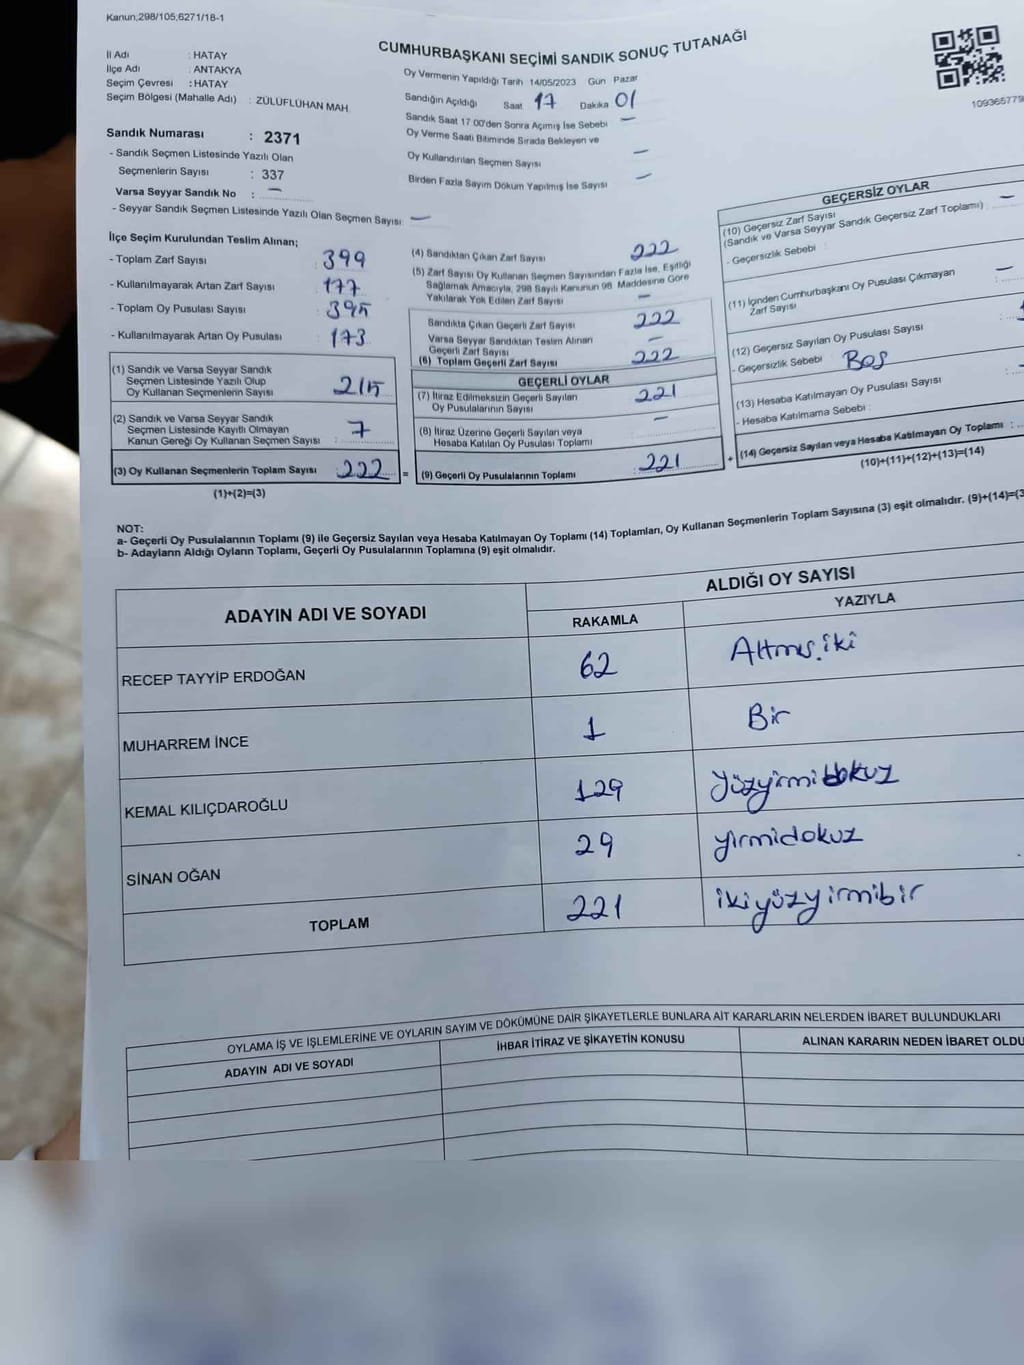 Kanun;298/105,6271/18-1
CUMHURBAŞKANI SEÇİMİ SANDIK SONUÇ TUTANAĞI
İl Adı : HATAY
İlçe Adı : ANTAKYA
Seçim Çevresi : HATAY
Seçim Bölgesi (Mahalle Adı) : ZÜLÜFLÜHAN MAH.
Sandık Numarası : 2371
- Sandık Seçmen Listesinde Yazılı Olan
Seçmenlerin Sayısı : 337
Varsa Seyyar Sandık No : —
- Seyyar Sandık Seçmen Listesinde Yazılı Olan Seçmen Sayısı: —
Oy Vermenin Yapıldığı Tarih 14/05/2023 Gün Pazar
Sandığın Açıldığı Saat 17 Dakika 01
Sandık Saat 17:00'den Sonra Açımış İse Sebebi —
Oy Verme Saati Bitiminde Sırada Bekleyen ve
Oy Kullandırılan Seçmen Sayısı —
Birden Fazla Sayım Döküm Yapılmış İse Sayısı —
İlçe Seçim Kurulundan Teslim Alınan;
- Toplam Zarf Sayısı : 399
- Kullanılmayarak Artan Zarf Sayısı : 177
- Toplam Oy Pusulası Sayısı : 395
- Kullanılmayarak Artan Oy Pusulası : 173
(1) Sandık ve Varsa Seyyar Sandık
Seçmen Listesinde Yazılı Olup
Oy Kullanan Seçmenlerin Sayısı : 215
(2) Sandık ve Varsa Seyyar Sandık
Seçmen Listesinde Kayıtlı Olmayan
Kanun Gereği Oy Kullanan Seçmen Sayısı : 7
(3) Oy Kullanan Seçmenlerin Toplam Sayısı : 222 =
(1)+(2)=(3)
(4) Sandıktan Çıkan Zarf Sayısı 222
(5) Zarf Sayısı Oy Kullanan Seçmen Sayısından Fazla İse, Eşitliği
Sağlamak Amacıyla, 298 Sayılı Kanunun 98. Maddesine Göre
Yakılarak Yok Edilen Zarf Sayısı —
Sandıkta Çıkan Geçerli Zarf Sayısı 222
Varsa Seyyar Sandıktan Teslim Alınan
Geçerli Zarf Sayısı —
(6) Toplam Geçerli Zarf Sayısı 222
GEÇERLİ OYLAR
(7) İtiraz Edilmeksizin Geçerli Sayılan
Oy Pusulalarının Sayısı : 221
(8) İtiraz Üzerine Geçerli Sayılan veya
Hesaba Katılan Oy Pusulası Toplamı —
(9) Geçerli Oy Pusulalarının Toplamı : 221 +
GEÇERSİZ OYLAR
(10) Geçersiz Zarf Sayısı
(Sandık ve Varsa Seyyar Sandık Geçersiz Zarf Toplamı) : —
- Geçersizlik Sebebi :
(11) İçinden Cumhurbaşkanı Oy Pusulası Çıkmayan
Zarf Sayısı : —
(12) Geçersiz Sayılan Oy Pusulası Sayısı :
- Geçersizlik Sebebi : Boş
(13) Hesaba Katılmayan Oy Pusulası Sayısı :
- Hesaba Katılmama Sebebi :
(14) Geçersiz Sayılan veya Hesaba Katılmayan Oy Toplamı :
(10)+(11)+(12)+(13)=(14)
NOT:
a- Geçerli Oy Pusulalarının Toplamı (9) ile Geçersiz Sayılan veya Hesaba Katılmayan Oy Toplamı (14) Toplamları, Oy Kullanan Seçmenlerin Toplam Sayısına (3) eşit olmalıdır. (9)+(14)=(3
b- Adayların Aldığı Oyların Toplamı, Geçerli Oy Pusulalarının Toplamına (9) eşit olmalıdır.
ADAYIN ADI VE SOYADI
ALDIĞI OY SAYISI
RAKAMLA YAZIYLA
RECEP TAYYİP ERDOĞAN 62 Altmış iki
MUHARREM İNCE 1 Bir
KEMAL KILIÇDAROĞLU 129 yüzyirmidokuz
SİNAN OĞAN 29 yirmidokuz
TOPLAM 221 ikiyüzyirmibir
OYLAMA İŞ VE İŞLEMLERİNE VE OYLARIN SAYIM VE DÖKÜMÜNE DAİR ŞİKAYETLERLE BUNLARA AİT KARARLARIN NELERDEN İBARET BULUNDUKLARI
ADAYIN ADI VE SOYADI İHBAR İTİRAZ VE ŞİKAYETİN KONUSU ALINAN KARARIN NEDEN İBARET OLDU